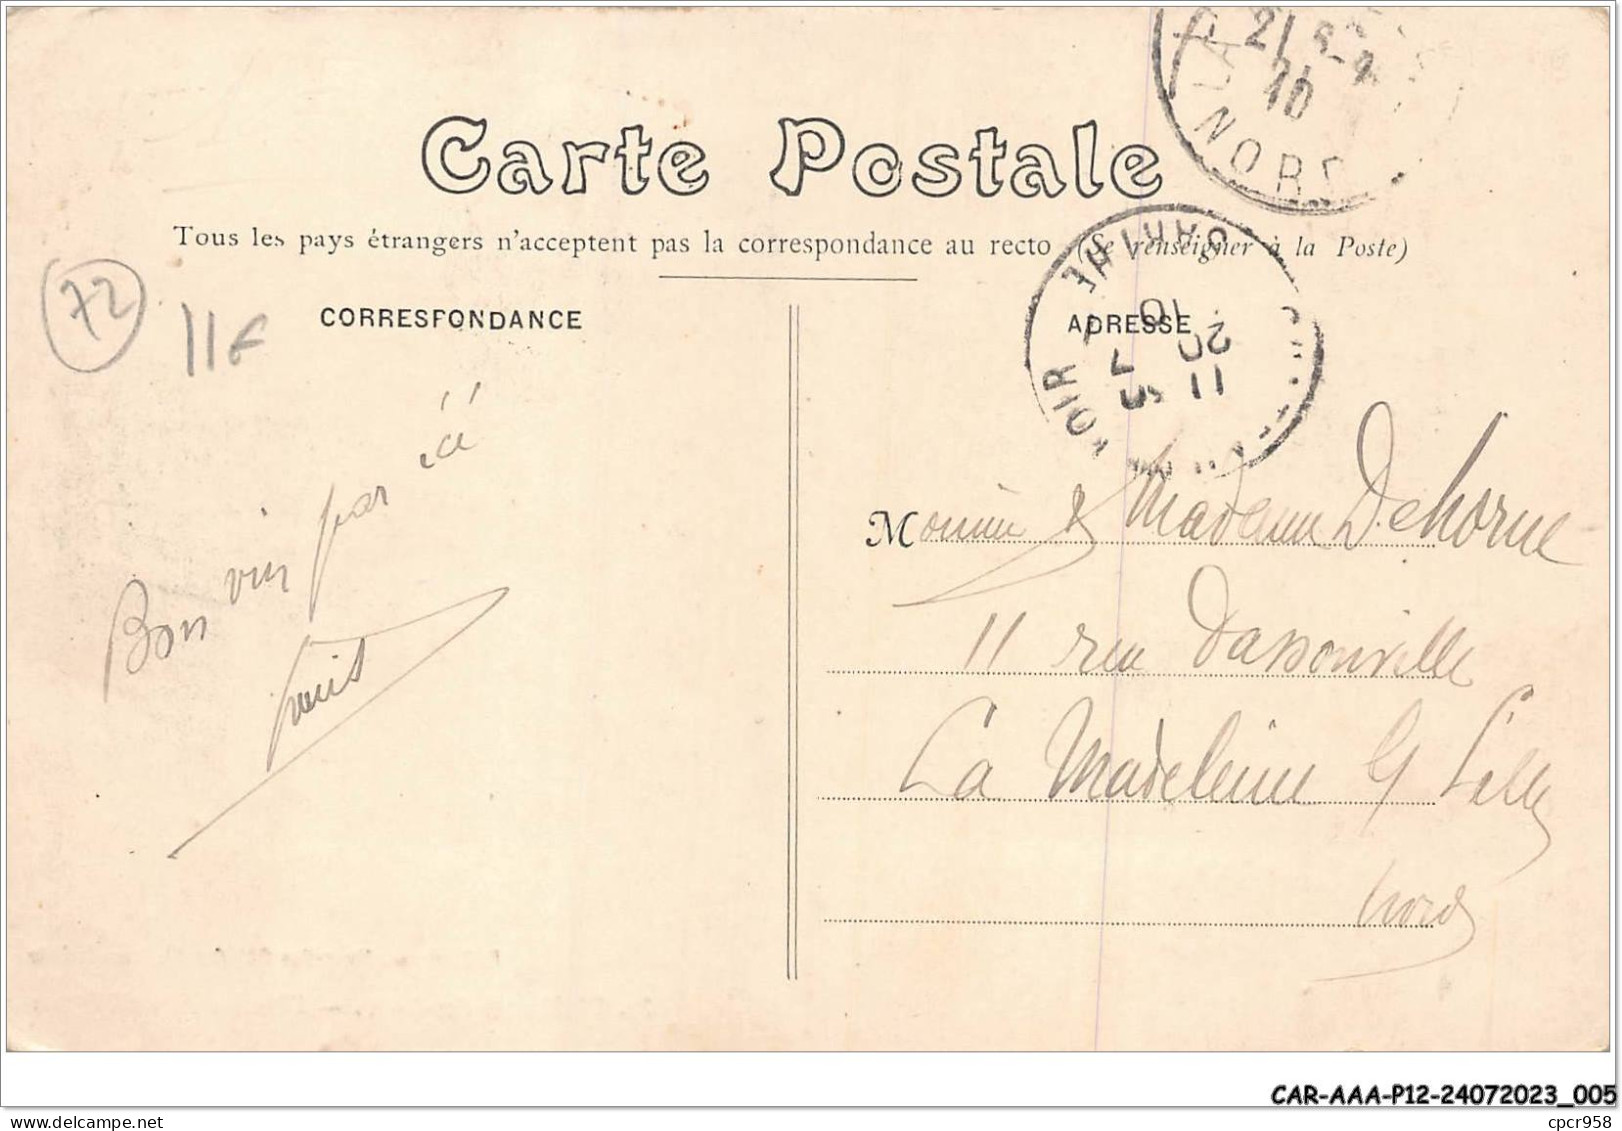 Carte Postale
Tous les pays étrangers n'acceptent pas la correspondance au recto (Se renseigner à la Poste)
CORRESPONDANCE
ADRESSE
72
11€
21
10
NORD
SARTHE
LOIR
11
20 7
10
Bon vin par ici
Louis
Monsieur & Madame Dehorne
11 rue Dassonville
La Madeleine
Lille
Nord
CAR-AAA-P12-24072023_005
cpcr958